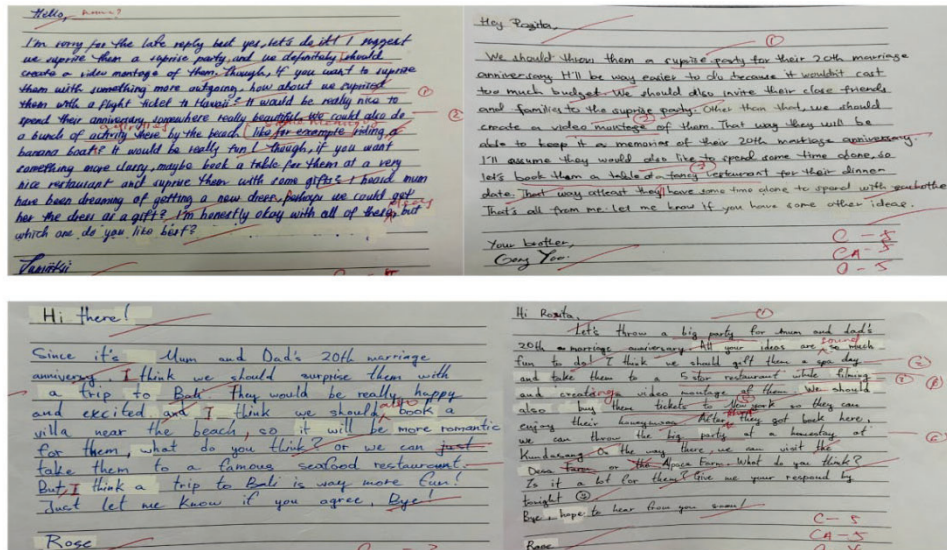 Hello,
I'm sorry for the late reply but yes, let's do it! I suggest
we suprise them a suprise party, and we definitely should
create a video montage of them. Though, if you want to suprise
them with something more outgoing, how about we suprised
them with a flight ticket to Hawaii? It would be really nice to
spend their anniversary somewhere really beautiful. We could also do
a bunch of activity there by the beach, like for example riding a
banana boat? It would be really fun! Though, if you want
something more classy, maybe book a table for them at a very
nice restaurant and suprise them with some gifts? I heard mum
have been dreaming of getting a new dress, perhaps we could get
her the dress as a gift? I'm honestly okay with all of these, but
which one do you like best?
Hey Rozita,
We should throw them a suprise party for their 20th marriage
anniversary. It'll be way easier to do because it wouldn't cost
too much budget. We should also invite their close friends
and families to the suprise party. Other than that, we should
create a video of them. That way they will be
able to keep it a memories of their 20th marriage anniversary.
I'll assume they would also like to spend some time alone, so
let's book them a table at a fancy restaurant for their dinner
date. That way atleast they have some time alone to spend with
That's all from me. Let me know if you have some other ideas.
Your brother,
Gong Yoo.
C - 5
CA - 5
O - 5
Hi there!
Since it's Mum and Dad's 20th marriage
anniversy. I think we should surprise them with
a trip to Bali. They would be really happy
and excited and I think we should also book a
villa near the beach, so it will be more romantic
for them, what do you think? or we can just
take them to a famous seafood restaurount.
But, I think a trip to Bali is way more fun!
Just let me know if you agree, Bye!
Rose
Hi Rozita,
Let's throw a big party for mum and dad's
20th marriage anniversary. All your ideas are sound so much
fun to do! I think we should gift them a spa day
and take them to a 5 star restaurant while filming
and creating a video montage of them. We should
also buy them tickets to New York so they can
enjoy their honeymoon. After they got back here,
we can throw the big party at a homestay at
Kundasang. On the way there, we can visit the
Farm or the Alpaca Farm. What do you think?
Is it a lot for them? Give me your respond by
tonight
Bye, hope to hear from you soon!
Rose
C - 5
CA - 5